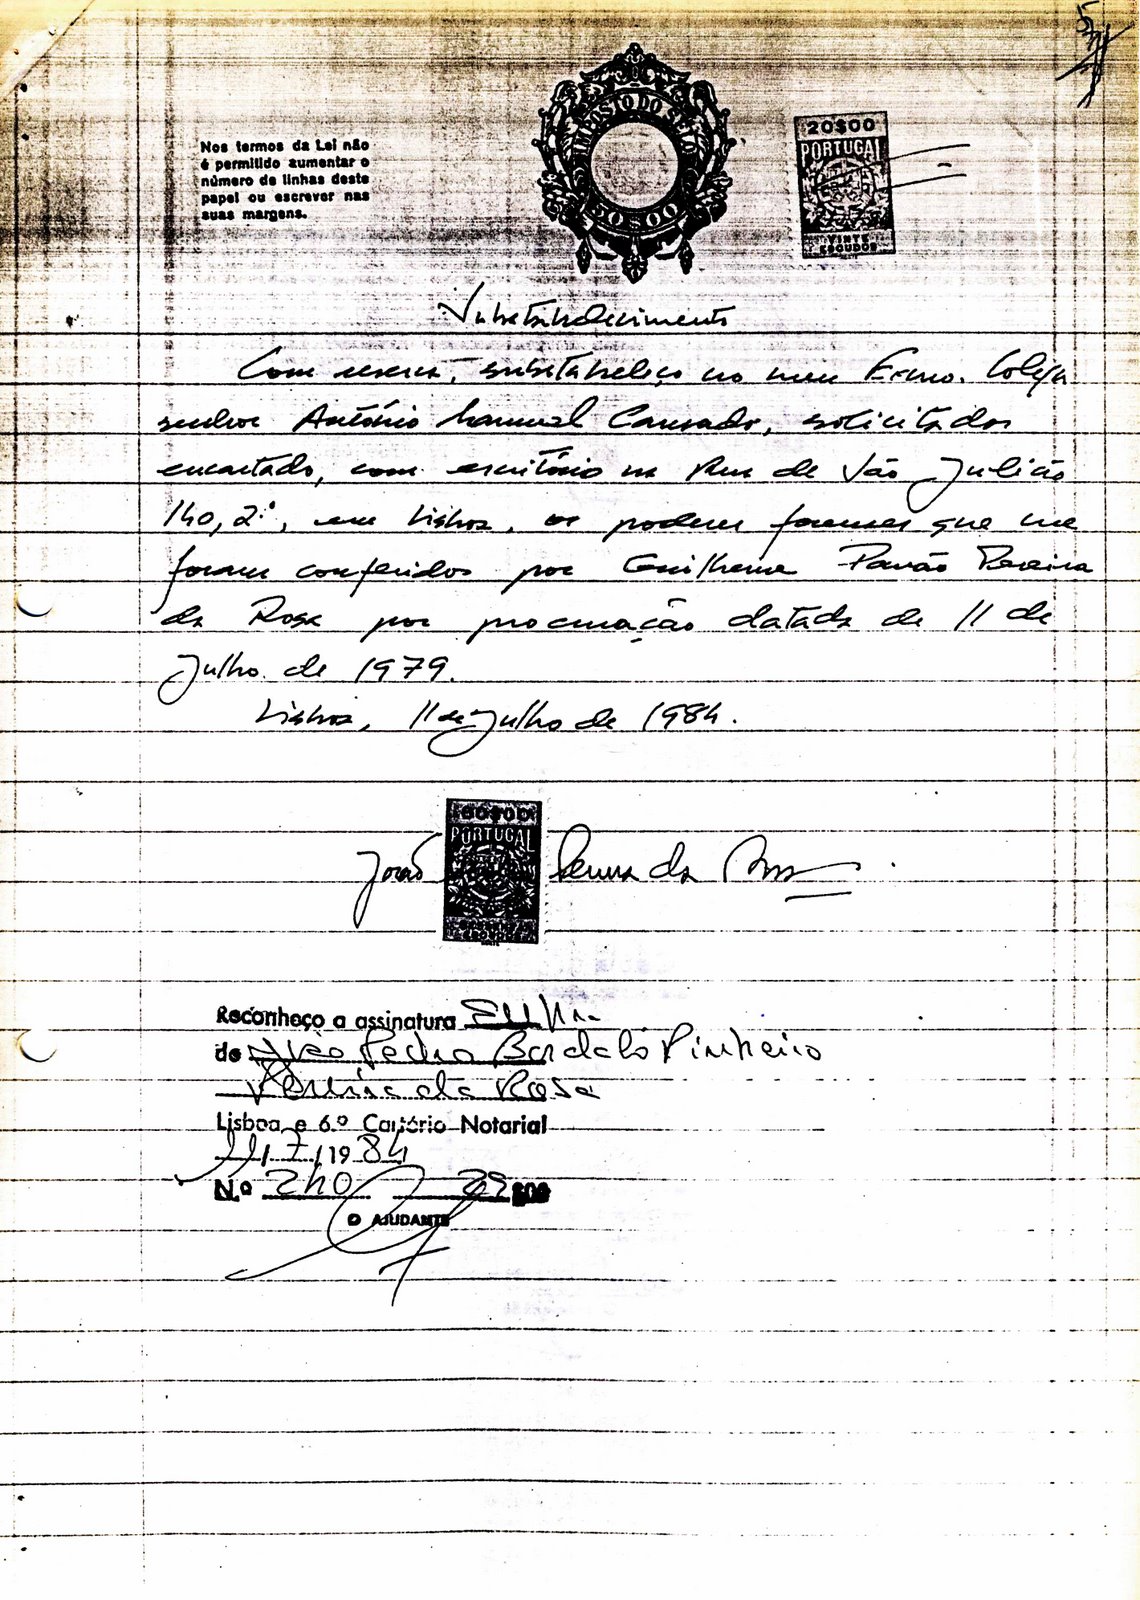 Nos termos da Lei não
é permitido aumentar o
número de linhas deste
papel ou escrever nas
suas margens.
IMPOSTO DO SELO
50$00
20$00
PORTUGAL
VINTE
ESCUDOS
Substabelecimento
Com reserva, substabeleço no meu Exmo. Colega
senhor António Manuel Cansado, solicitador
encartado, com escritório na Rua de São Julião
140, 2.º, em Lisboa, os poderes forenses que me
foram conferidos por Guilherme Pavão Pereira
da Rosa por procuração datada de 11 de
Julho de 1979.
Lisboa, 11 de Julho de 1984.
PORTUGAL
João Pereira da Rosa
Reconheço a assinatura
de João Pedro Bordalo Pinheiro
Pereira da Rosa
Lisboa e 6.º Cartório Notarial
11/7/1984
N.º 240
O AJUDANTE